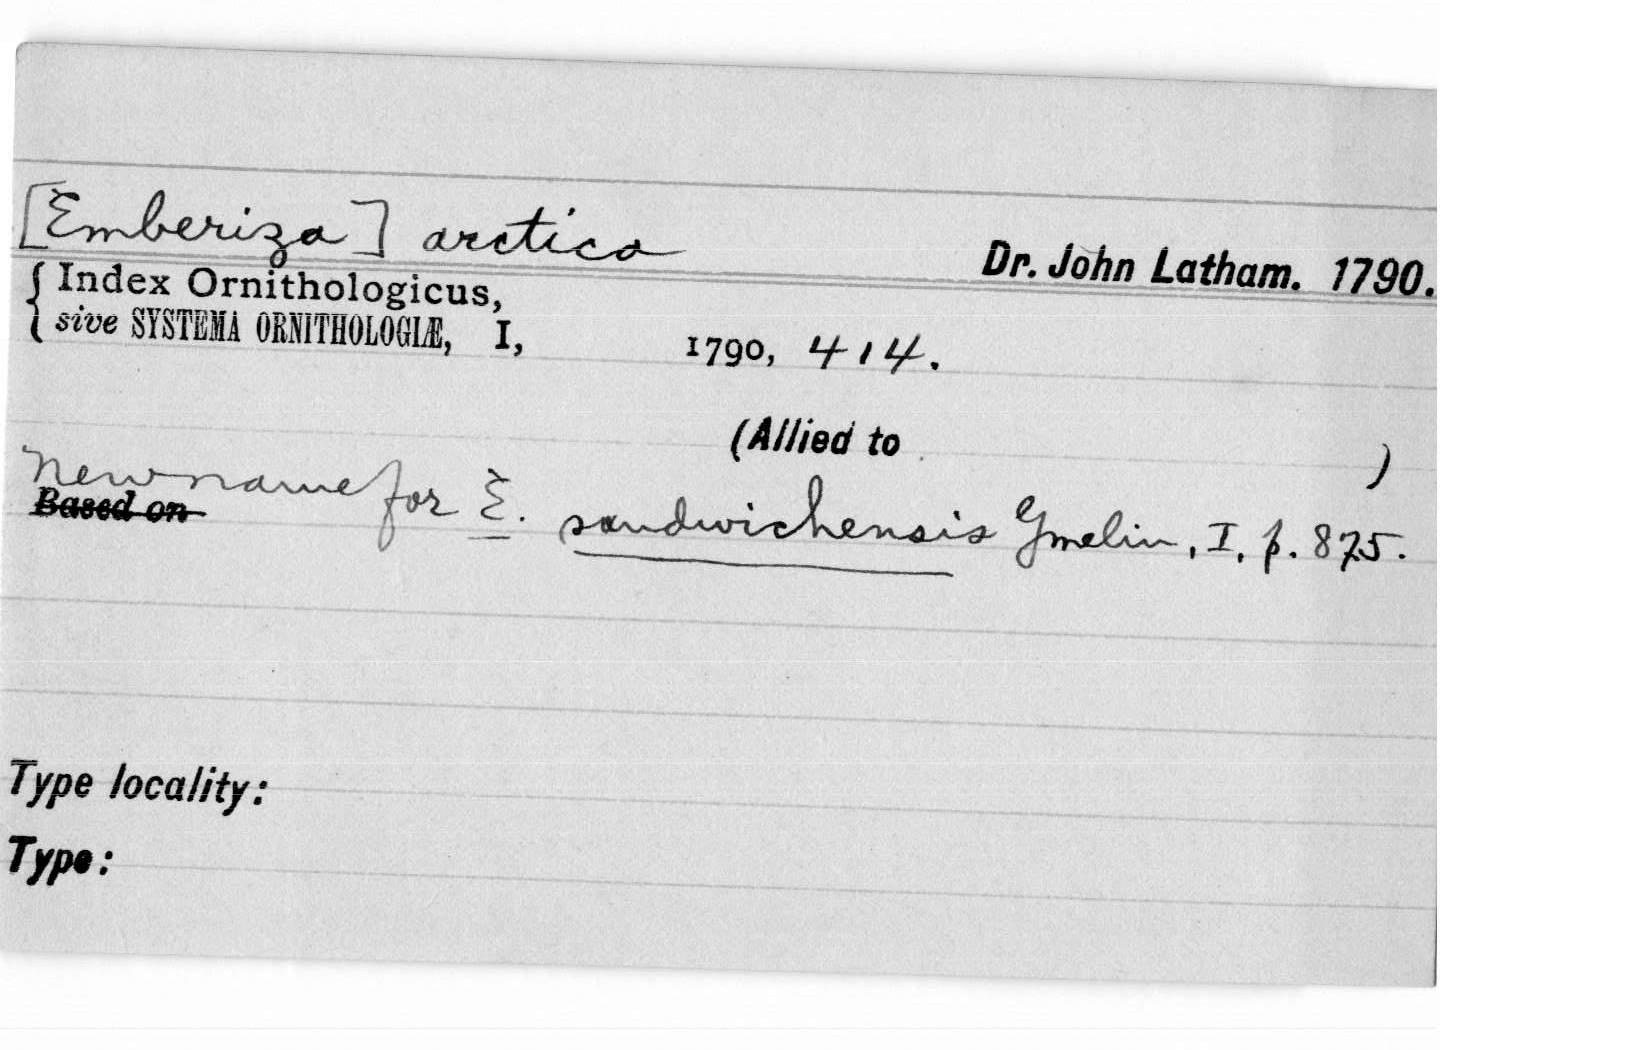 [Emberiza] arctica
Dr. John Latham. 1790.
{ Index Ornithologicus,
sive SYSTEMA ORNITHOLOGIÆ, I, 1790, 414.
(Allied to )
New name for E. sandwichensis Gmelin, I, p. 875.
Based on
Type locality:
Type: